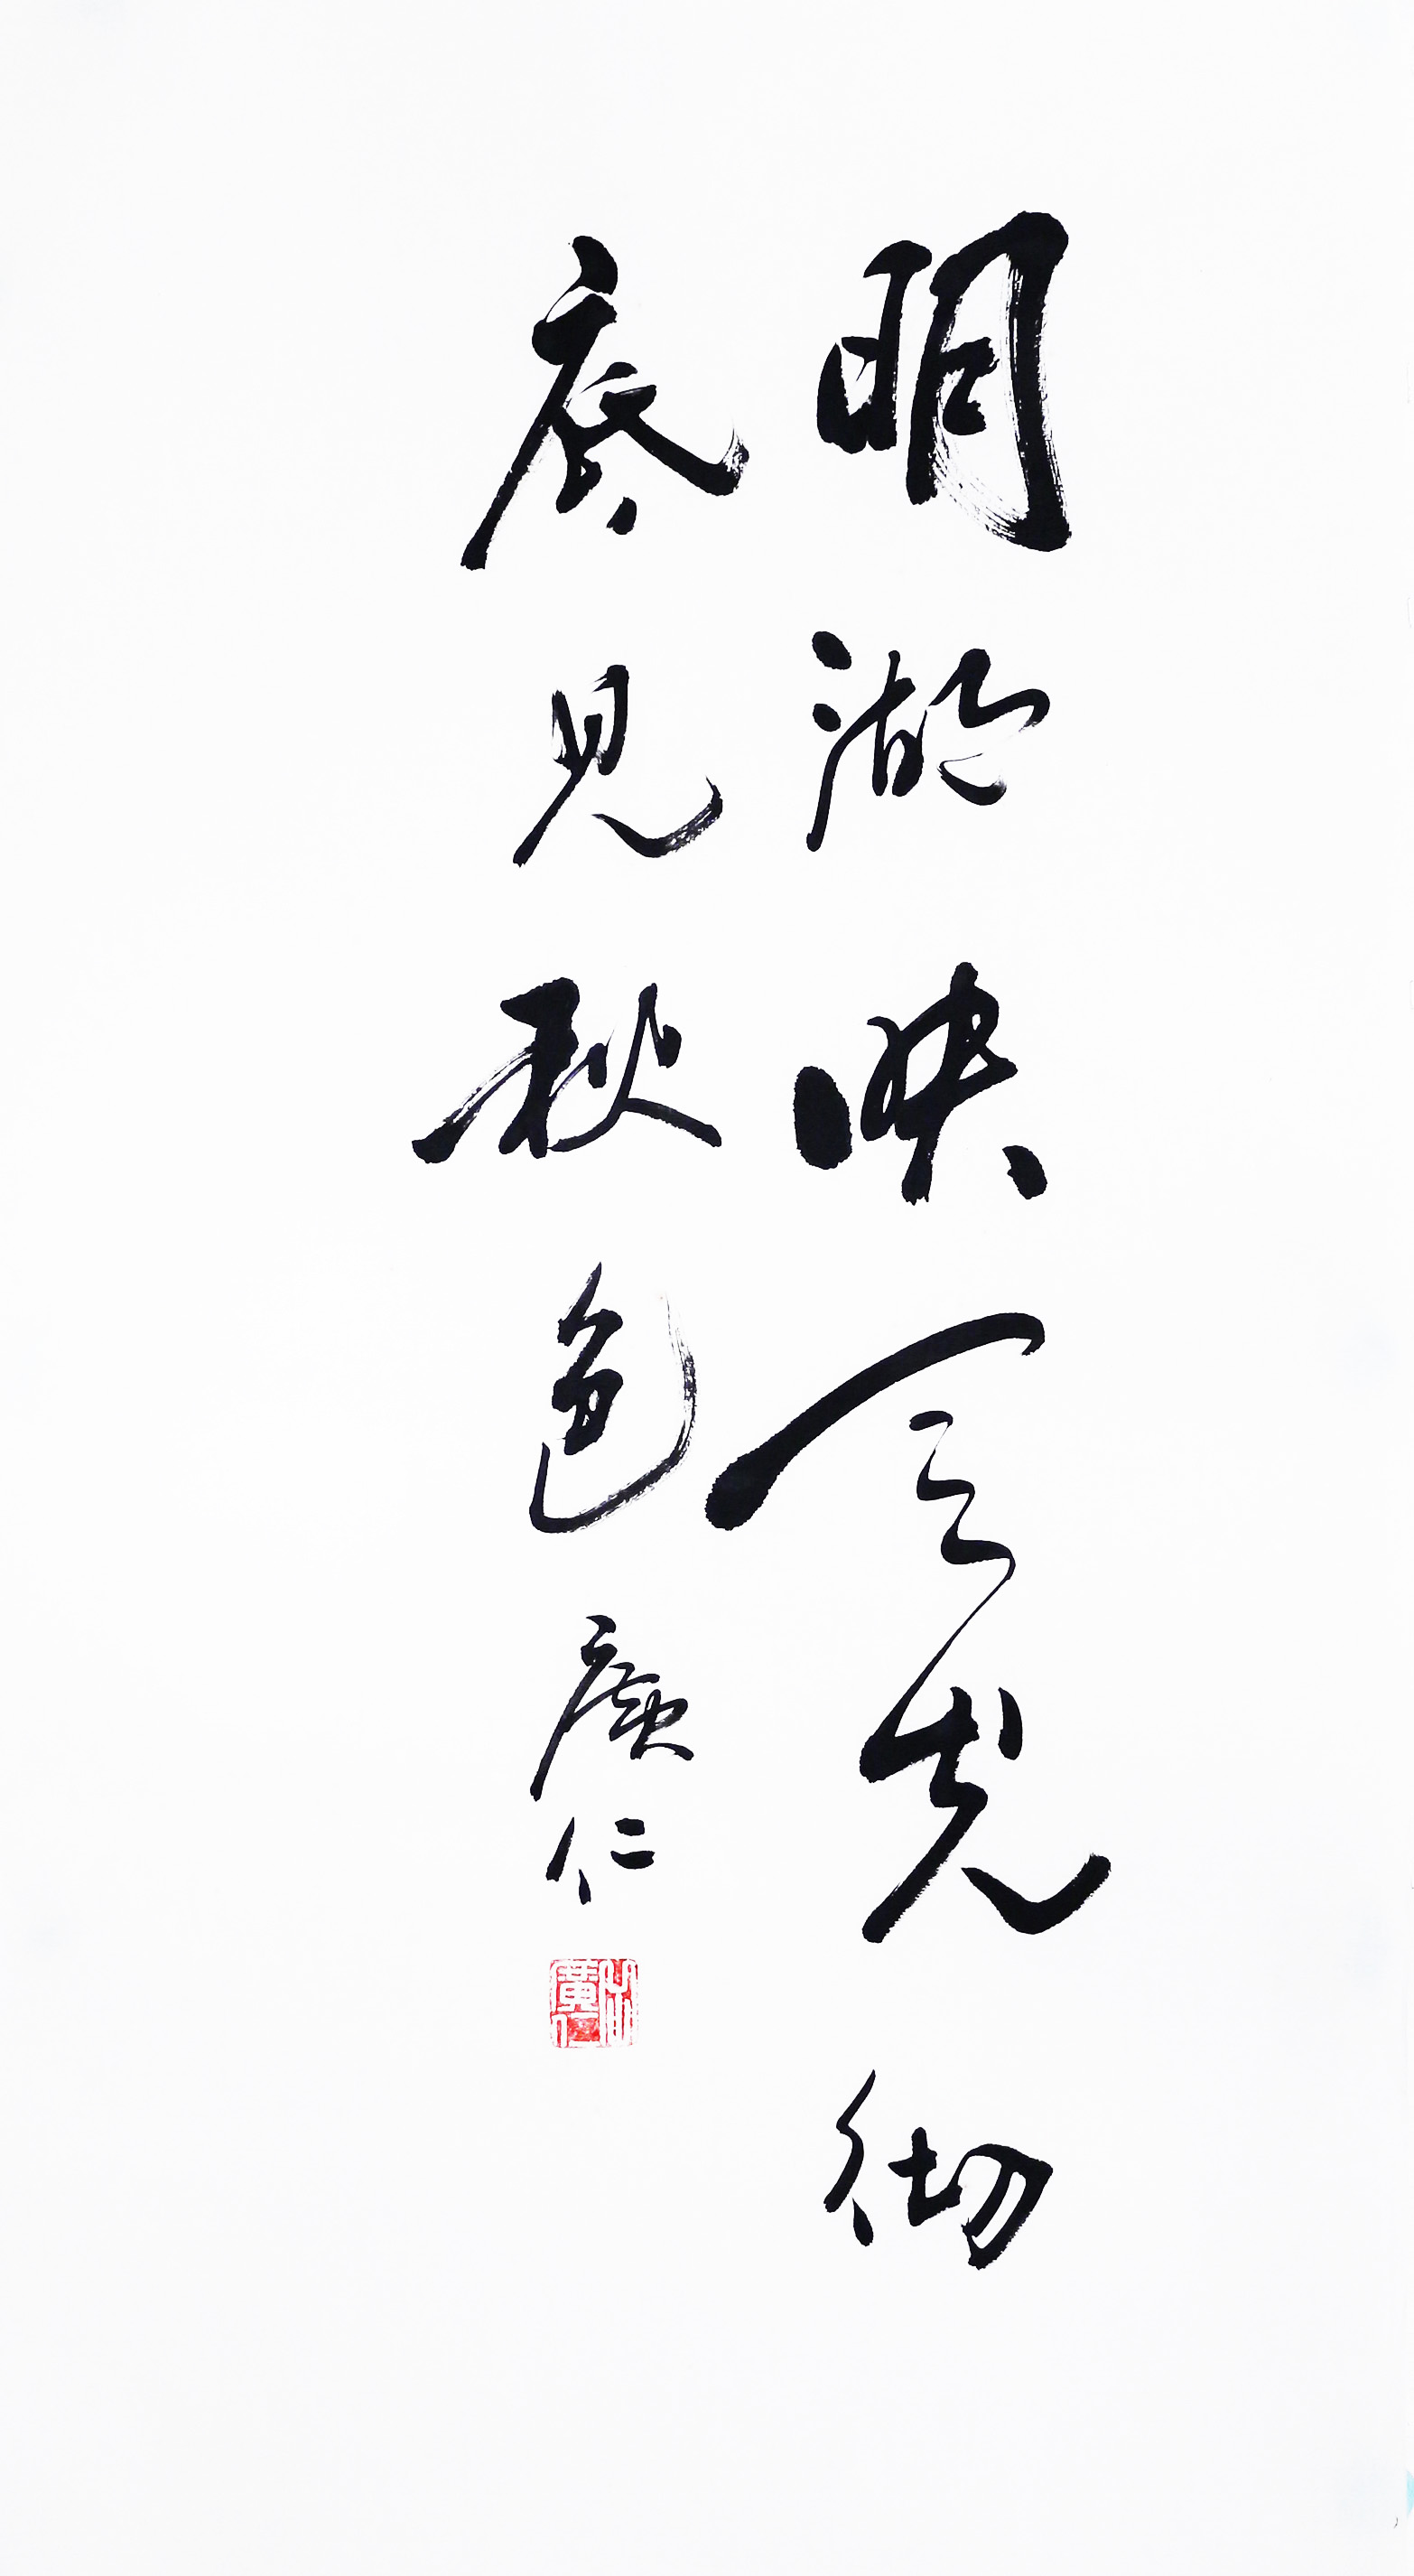 明湖映天光彻
底见秋色 广仁